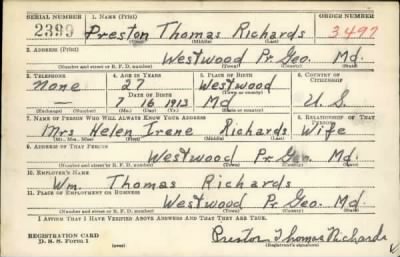 SERIAL NUMBER 1. NAME (Print) ORDER NUMBER
2390 Preston Thomas Richards 3497
(First) (Middle) (Last)
2. ADDRESS (Print)
Westwood Pr. Geo. Md.
(Number and street or R. F. D. number) (Town) (County) (State)
3. TELEPHONE 4. AGE IN YEARS 5. PLACE OF BIRTH 6. COUNTRY OF CITIZENSHIP
None 27 Westwood
DATE OF BIRTH (Town or county)
7 16 1913 Md U. S.
(Exchange) (Number) (Mo.) (Day) (Yr.) (State or country)
7. NAME OF PERSON WHO WILL ALWAYS KNOW YOUR ADDRESS 8. RELATIONSHIP OF THAT PERSON
Mrs Helen Irene Richards Wife
(Mr., Mrs., Miss) (First) (Middle) (Last)
9. ADDRESS OF THAT PERSON
Westwood Pr. Geo. Md.
(Number and street or R. F. D. number) (Town) (County) (State)
10. EMPLOYER'S NAME
Wm. Thomas Richards
11. PLACE OF EMPLOYMENT OR BUSINESS
Westwood Pr. Geo. Md.
(Number and street or R. F. D. number) (Town) (County) (State)
I AFFIRM THAT I HAVE VERIFIED ABOVE ANSWERS AND THAT THEY ARE TRUE.
REGISTRATION CARD
D. S. S. Form 1 (over) Preston Thomas Richards
(Registrant's signature)